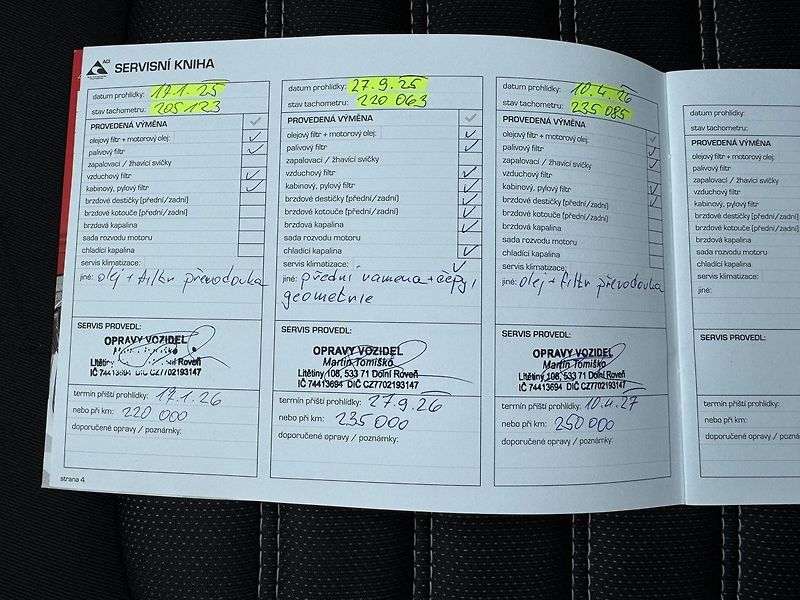 ACI
SERVISNÍ KNIHA
datum prohlídky: 17.1.25
stav tachometru: 205 123
PROVEDENÁ VÝMĚNA ✓
olejový filtr + motorový olej: ✓
palivový filtr ✓
zapalovací / žhavící svíčky
vzduchový filtr ✓
kabinový, pylový filtr ✓
brzdové destičky (přední/zadní)
brzdové kotouče (přední/zadní)
brzdová kapalina
sada rozvodu motoru
chladící kapalina
servis klimatizace:
jiné: olej + filtr převodovka
SERVIS PROVEDL:
OPRAVY VOZIDEL
Litětiny Dolní Roveň
IČ 74413694 DIČ CZ7702193147
termín příští prohlídky: 17.1.26
nebo při km: 220 000
doporučené opravy / poznámky:
strana 4
datum prohlídky: 27.9.25
stav tachometru: 220 063
PROVEDENÁ VÝMĚNA ✓
olejový filtr + motorový olej: ✓
palivový filtr ✓
zapalovací / žhavící svíčky
vzduchový filtr ✓
kabinový, pylový filtr ✓
brzdové destičky (přední/zadní) ✓
brzdové kotouče (přední/zadní) ✓
brzdová kapalina ✓
sada rozvodu motoru
chladící kapalina ✓
servis klimatizace: ✓
jiné: přední ramena + čepy,
geometrie
SERVIS PROVEDL:
OPRAVY VOZIDEL
Martin Tomiško
Litětiny 108, 533 71 Dolní Roveň
IČ 74413694 DIČ CZ7702193147
termín příští prohlídky: 27.9.26
nebo při km: 235 000
doporučené opravy / poznámky:
datum prohlídky: 10.4.26
stav tachometru: 235 085
PROVEDENÁ VÝMĚNA ✓
olejový filtr + motorový olej: ✓
palivový filtr ✓
zapalovací / žhavící svíčky
vzduchový filtr ✓
kabinový, pylový filtr ✓
brzdové destičky (přední/zadní)
brzdové kotouče (přední/zadní)
brzdová kapalina
sada rozvodu motoru
chladící kapalina
servis klimatizace:
jiné: olej + filtr převodovka
SERVIS PROVEDL:
OPRAVY VOZIDEL
Martin Tomiško
Litětiny 108, 533 71 Dolní Roveň
IČ 74413694 DIČ CZ7702193147
termín příští prohlídky: 10.4.27
nebo při km: 250 000
doporučené opravy / poznámky:
datum prohlídky:
stav tachometru:
PROVEDENÁ VÝMĚNA
olejový filtr + motorový olej:
palivový filtr
zapalovací / žhavící svíčky
vzduchový filtr
kabinový, pylový filtr
brzdové destičky (přední/zadní)
brzdové kotouče (přední/zadní)
brzdová kapalina
sada rozvodu motoru
chladící kapalina
servis klimatizace:
jiné:
SERVIS PROVEDL:
termín příští prohlídky:
nebo při km:
doporučené opravy / poznámky: